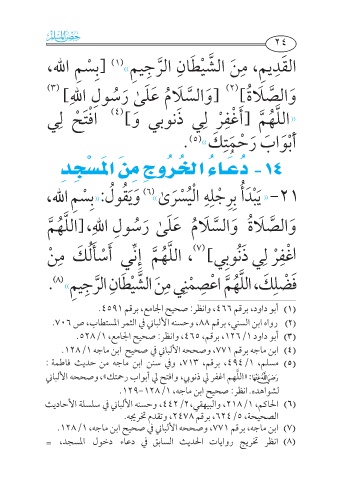 حصن المسلم
٢٤
القَدِيمِ، مِنَ الشَّيْطَانِ الرَّجِيمِ»(١) [بِسْمِ اللهِ،
وَالصَّلَاةُ](٢) [وَالسَّلَامُ عَلَىٰ رَسُولِ اللهِ](٣)
«اللَّهُمَّ [أَغْفِرْ لِي ذَنوبي وَ](٤) افْتَحْ لِي
أَبْوَابَ رَحْمَتِكَ»(٥).
١٤- دُعَاءُ الخُرُوجِ مِنَ المَسْجِدِ
٢١- «يَبْدَأُ بِرِجْلِهِ الْيُسْرَىٰ»(٦) وَيَقُولُ: «بِسْمِ اللهِ،
وَالصَّلَاةُ وَالسَّلَامُ عَلَىٰ رَسُولِ اللهِ، [اللَّهُمَّ
اغْفِرْ لِي ذُنُوبِي](٧)، اللَّهُمَّ إِنِّي أَسْأَلُكَ مِنْ
فَضْلِكَ، اللَّهُمَّ اعْصِمْنِي مِنَ الشَّيْطَانِ الرَّجِيمِ»(٨).
(١) أبو داود، برقم ٤٦٦، وانظر: صحيح الجامع، برقم ٤٥٩١.
(٢) رواه ابن السني، برقم ٨٨، وحسنه الألباني في الثمر المستطاب، ص ٧٠٦.
(٣) أبو داود ١/ ١٢٦، برقم ٤٦٥، وانظر: صحيح الجامع، ١/ ٥٢٨.
(٤) ابن ماجه برقم ٧٧١، وصححه الألباني في صحيح ابن ماجه ١/ ١٢٨.
(٥) مسلم، ١/ ٤٩٤، برقم ٧١٣، وفي سنن ابن ماجه من حديث فاطمة:
رَضِيَ اللَّهُ عَنْهَا: «اللهم اغفر لي ذنوبي، وافتح لي أبواب رحمتك»، وصححه الألباني
لشواهده. انظر: صحيح ابن ماجه، ١/ ١٢٨-١٢٩.
(٦) الحاكم، ١/ ٢١٨، والبيهقي، ٢/ ٤٤٢، وحسنه الألباني في سلسلة الأحاديث
الصحيحة، ٥/ ٦٢٤، برقم ٢٤٧٨، وتقدم تخريجه.
(٧) ابن ماجه، برقم ٧٧١، وصححه الألباني في صحيح ابن ماجه، ١/ ١٢٨.
(٨) انظر تخريج روايات الحديث السابق في دعاء دخول المسجد، =